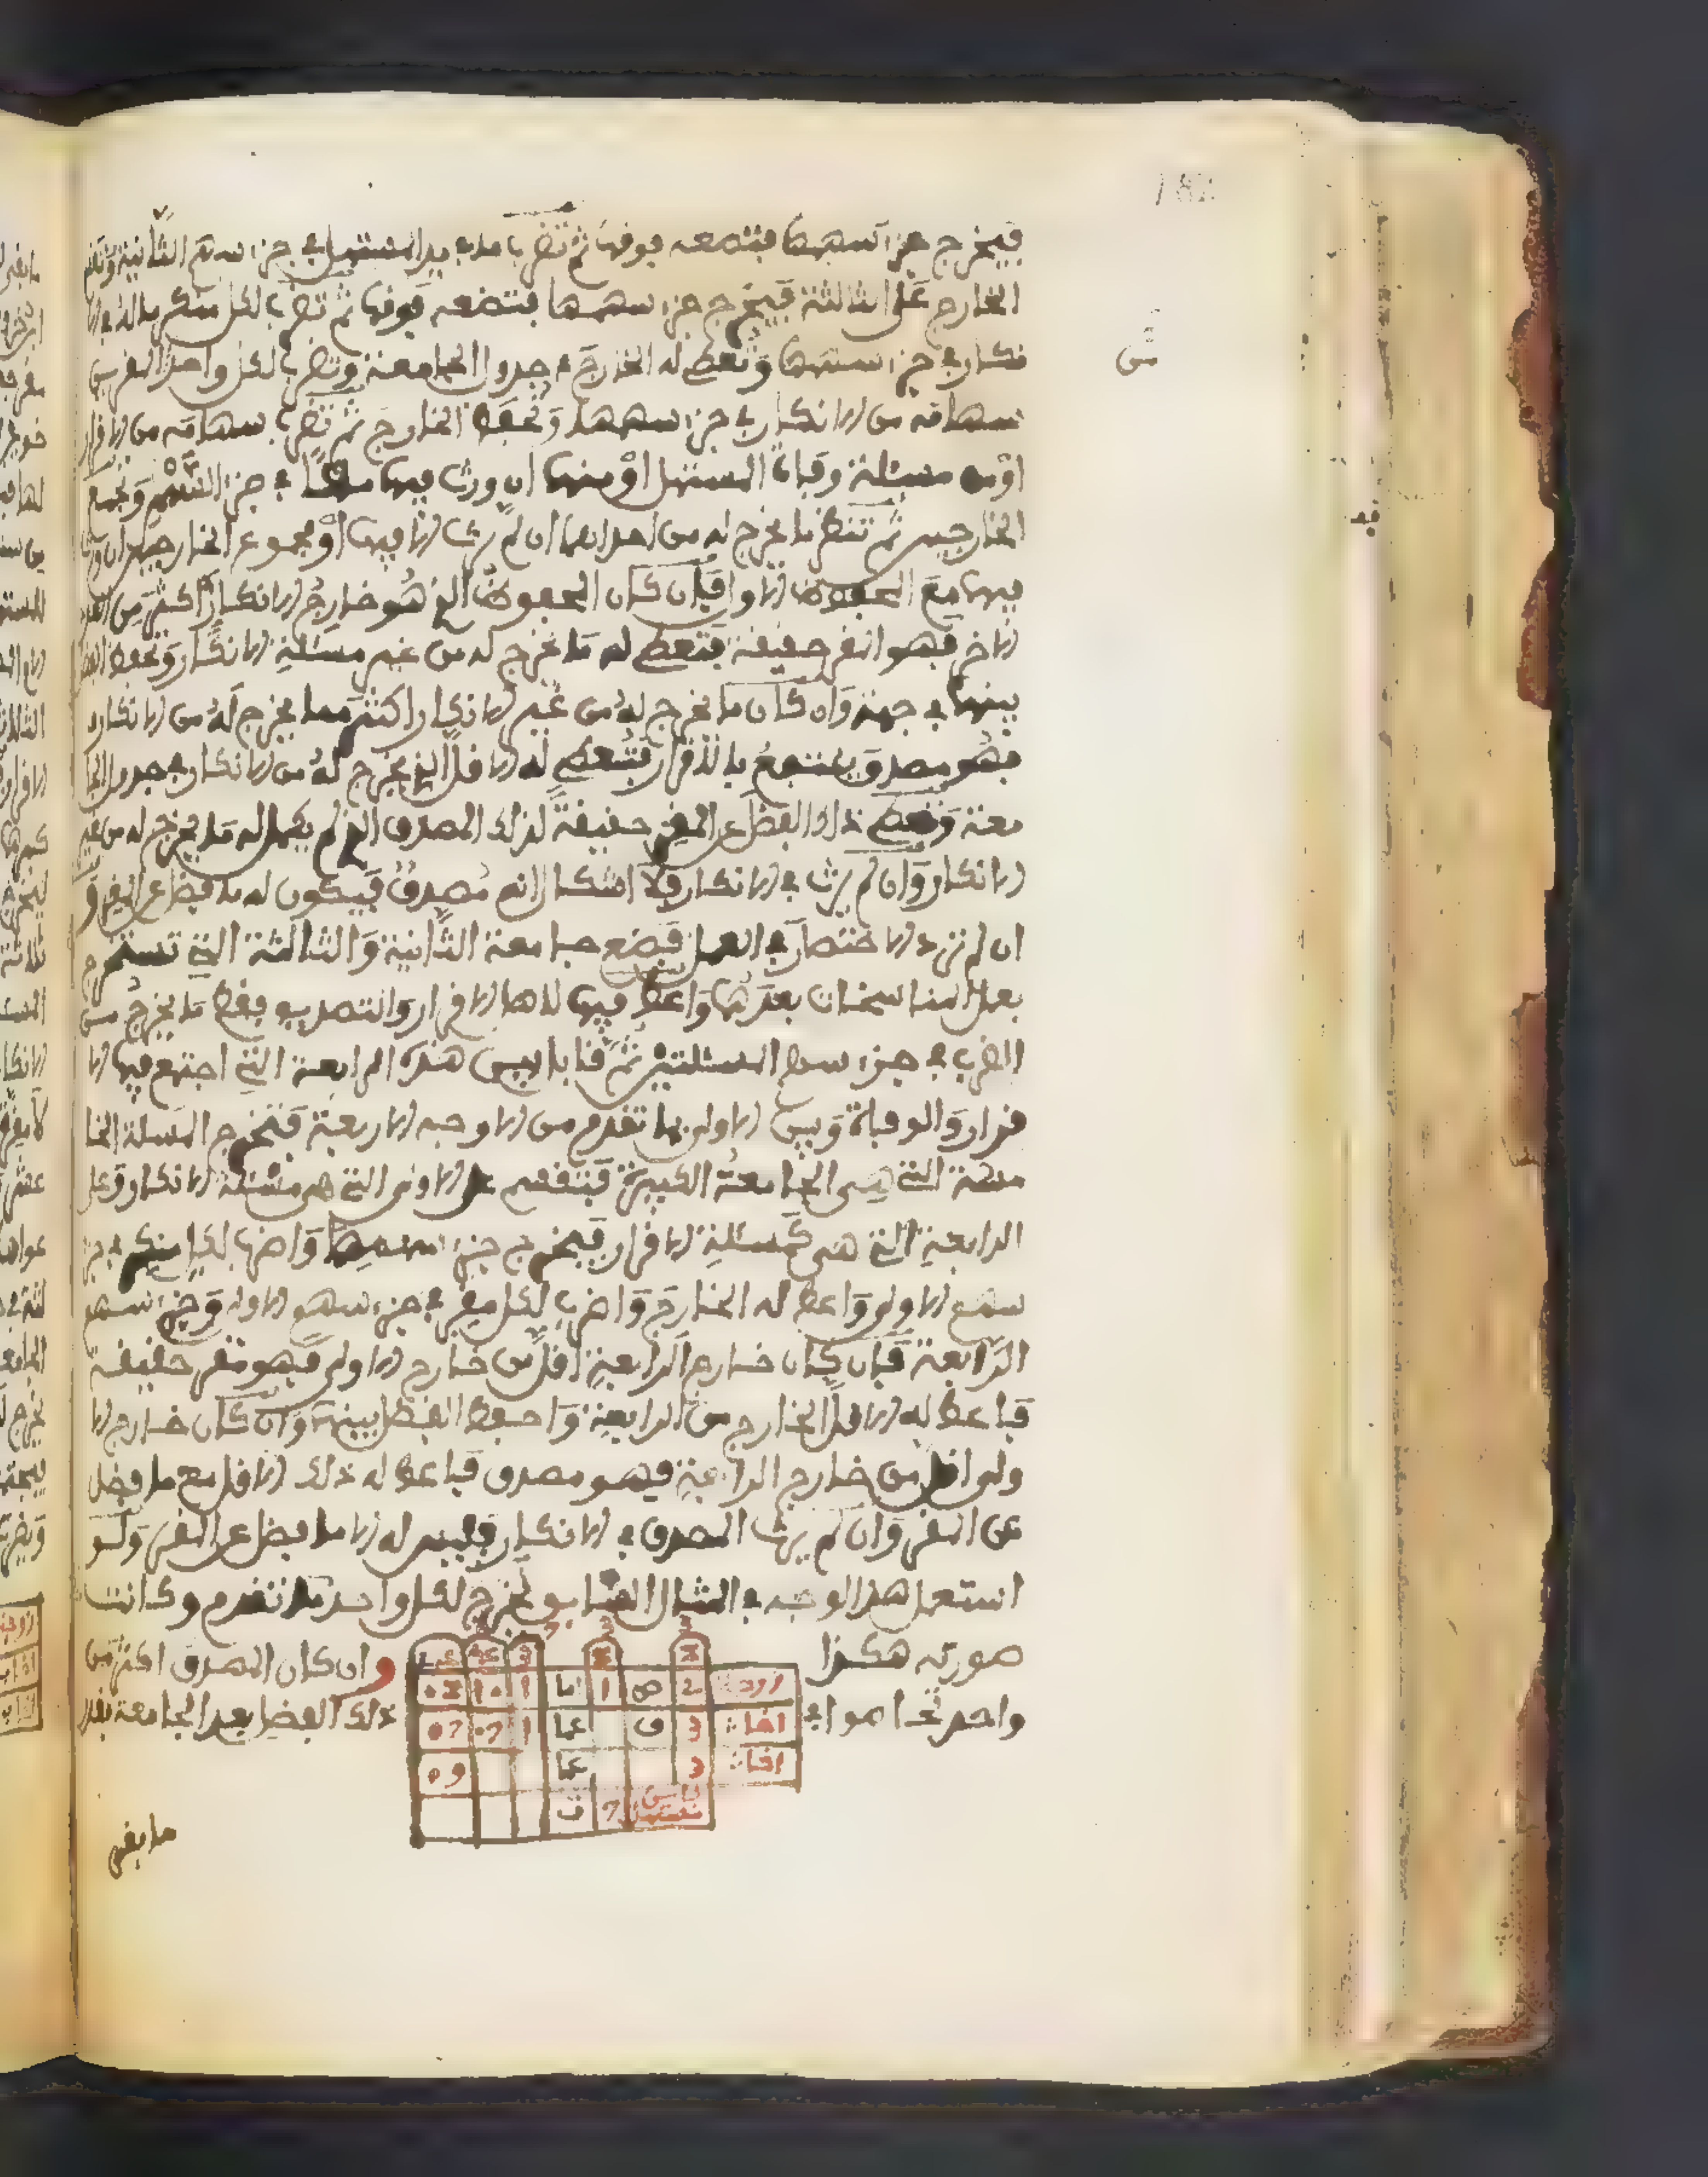 182
فيخرج جزء سهمها فتضعه فوقها ثم تضرب ما بيد المستهل في جزء سهم الثانية وتقسم
الخارج على الثالثة فيخرج جزء سهمها فتضعه فوقها ثم تضرب لكل منكر ماله في الا
نكار في جزء سهمها وتعطى له الخارج في جدول الجامعة وتضرب لكل واحد
سهامه من الانكار في جزء سهمها وتحفظ الخارج ثم تضرب سهامه من الاقرار
او من مسئلة وفاة المستهل او منهما ان ورث فيهما معًا في جزء السهم وتجمع
الخارجين ثم تنظر ما يخرج له من احداهما ان لم يرث الا فيها او مجموع الخارجين ان ورث
فيهما مع المحفوظ الاول فان كان المحفوظ الذي هو خارج الانكار اكثر من
الاخر فهو المقر حقيقة فتعطى له ما يخرج له من غير مسئلة الانكار وتحفظ الفضل
بينهما في جهة وان كان ما يخرج له من غير الانكار اكثر مما يخرج له من الانكار
فهو مصدق ينتفع بالاقرار فتعطى له الاقل الذي يخرج له من الانكار في جدول الجا
معة وتعطى ذلك الفضل عن المقر حقيقة لذلك المصدق الذي لم يكمل له ما يخرج له من غير
الانكار وان لم يرث في الانكار فلا اشكال انه مصدق فيكون له ما فضل عن المقر و
ان لم ترد الاختصار في العمل فضع جامعة الثانية والثالثة التي تستخرج
بعمل المناسخات بعدهما واعط فيها لاهل الاقرار والتصديق فقط ما يخرج من
الضرب في جزء سهم المسئلتين ثم قابل بين هذه الرابعة التي اجتمع فيها الا
قرار والوفاة وبين الاولى بما تقدم من الاوجه الاربعة فتخرج المسئلة الخا
مسة التي هي الجامعة الكبيرة فتقسم على الاولى التي هي مسئلة الانكار وعلى
الرابعة التي هي كمسئلة الاقرار فيخرج جزء سهمها واضرب لكل منكر في جزء
سهم الاولى واعط له الخارج واضرب لكل مقر في جزء سهم الاولى وجزء سهم
الرابعة فان كان خارج الرابعة اقل من خارج الاولى فهو مقر حقيقة
فاعط له الاقل الخارج من الرابعة واحفظ الفضل بينهما وان كان خارج الا
ولى اقل من خارج الرابعة فهو مصدق فاعط له ذلك الاقل مع ما فضل
عن المقر وان لم يرث المصدق في الانكار فليس له الا ما فضل عن المقر ولو
استعمل هذا الوجه في المثال السابق لخرج لكل واحد ما تقدم وكانت
صورته هكذا وان كان المصدق اكثر من
واحد تحاصوا في ذلك الفضل بعد الجامعة بقدر
ما بقي